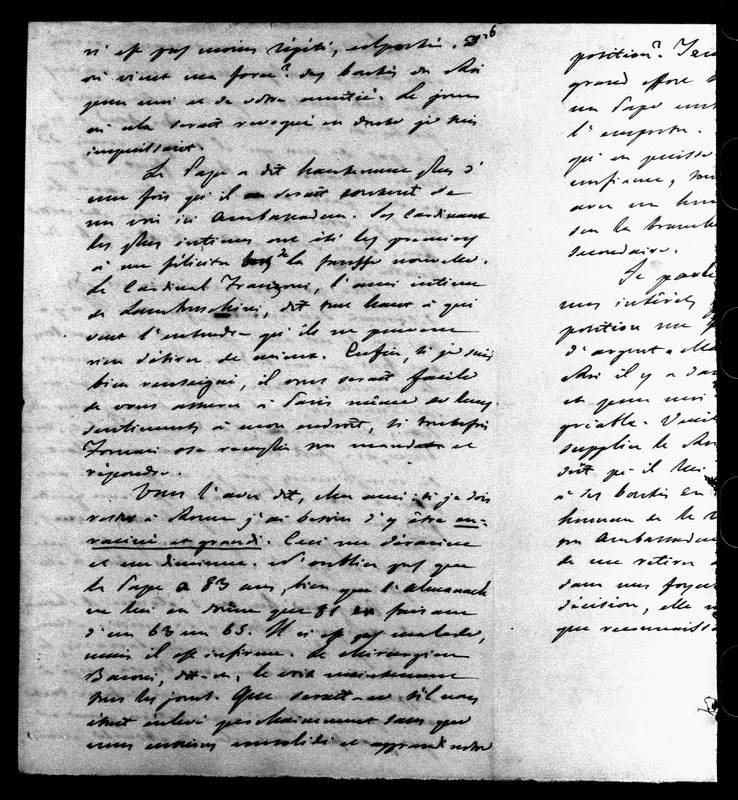 n'est pas moins répété, colporté. D'
où vient une force? des bontés du Roi
pour moi et de votre amitié. Le jour
où cela serait revoqué en doute je suis
impuissant.
Le Pape a dit hautement plus d'
une fois qu'il serait content de
me voir ici Ambassadeur. Ses Cardinaux
les plus intimes ont été les premiers
à me féliciter de la fausse nouvelle.
Le Cardinal Franzoni, l'ami intime
de Lambruschini, dit tout haut à qui
veut l'entendre qu'ils ne peuvent
rien désirer de mieux. Enfin, si je suis
bien renseigné, il vous serait facile
de vous assurer à Paris même de leurs
sentiments à mon endroit, si toutefois
Fornari ose remplir son mandat et
répondre.
Vous l'avez dit, cher ami: si je dois
rester à Rome j'ai besoin d'y être en-
raciné et grandi. Ceci me déracine
et me diminue. N'oubliez pas que
le Pape a 83 ans, bien que l'almanach
ne lui en donne que 81 en faisant
d'un 63 un 65. Il n'est pas malade,
mais il est infirme. Le chirurgien
Baroni, dit-on, le voit maintenant
tous les jours. Que serait-ce s'il nous
était enlevé prochainement sans que
nous eussions consolidé et agrandi notre
position? Je
grand effort
un Pape
l'emporter.
qui en puisse
confiance,
avec un
sur la branche
secondaire.
Je parle
mes intérêts
position me
d'argent a
Roi il y a
et pour moi
supplier le
dit qu'il
à ses bontés en
honneur de le
son Ambassadeur
de me retirer
dans mes foyers
décision, elle
que reconnaiss